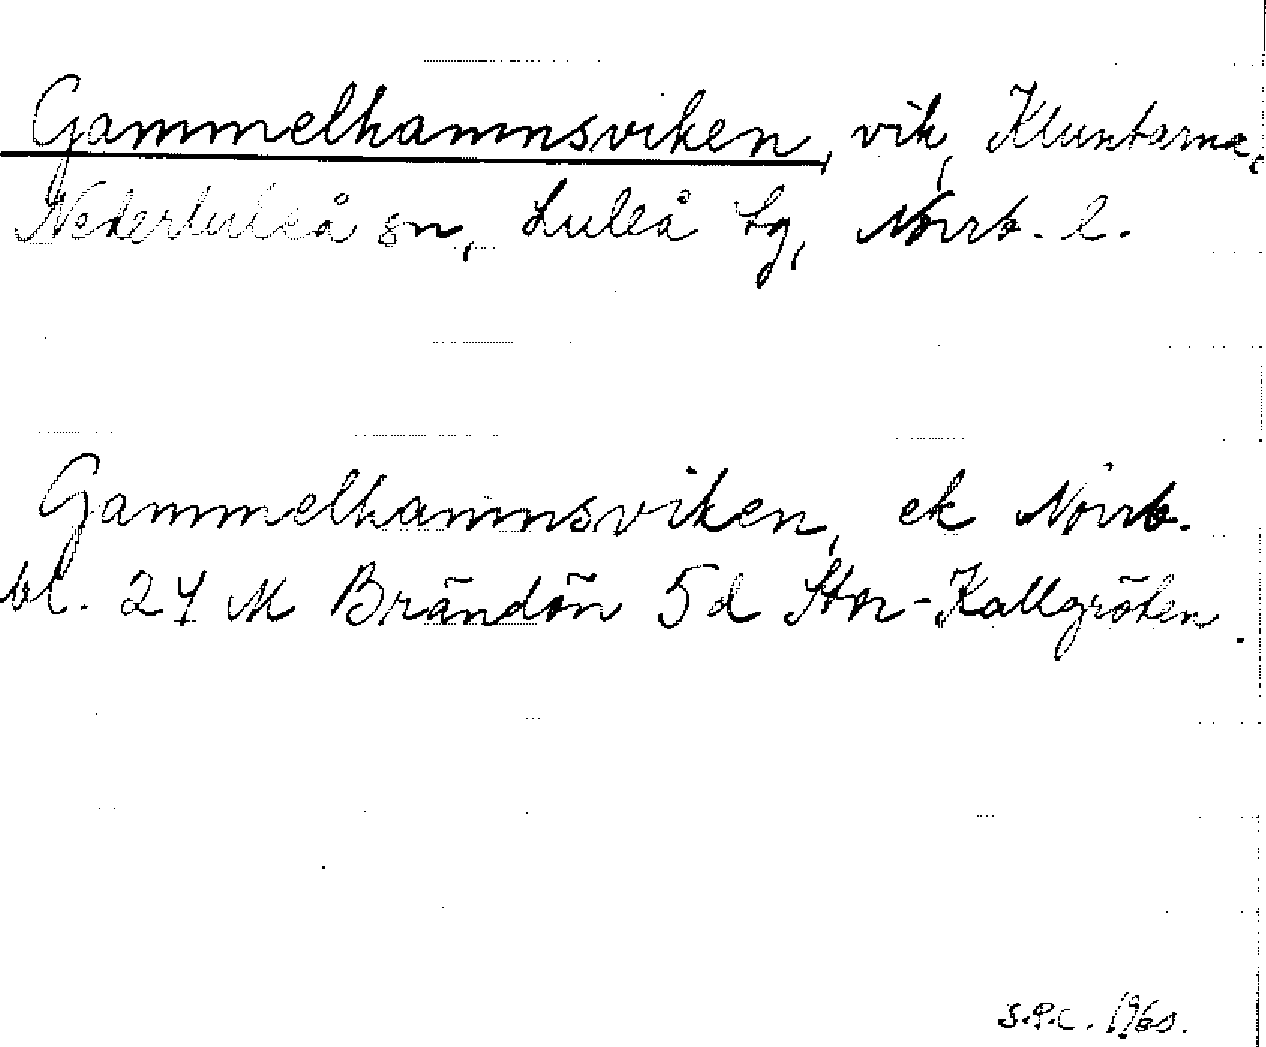 Gammelhamnsviken, vik, Kluntarna,
Nederluleå sn, Luleå tg, Norrb. l.
Gammelhamnsviken, ek Norrb.
bl. 24 M Brändön 5d Stor-Kallgröten.
S.P.C. 1960.